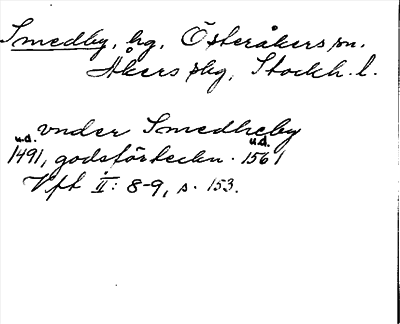 Smedby, hg, Österåkers sn.
Åkers skg, Stockh. l.
vnder Smedheby
u.d. u.d.
1491, godsförteckn. 1561
Vft II: 8-9, s. 153.